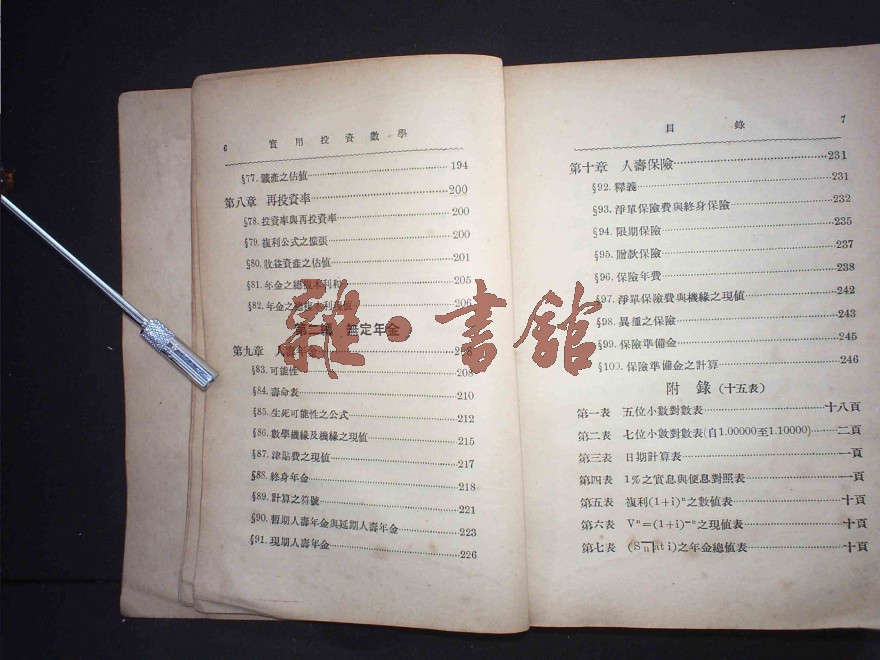 6 實用投資數學
§77. 鑛產之估値 194
第八章 再投資率 200
§78. 投資率與再投資率 200
§79. 複利公式之擴張 200
§80. 收益資產之估値 201
§81. 年金之總複本利和 205
§82. 年金之總複本利現値 206
第二編 無定年金
第九章 人壽年金 208
§83. 可能性 208
§84. 壽命表 210
§85. 生死可能性之公式 212
§86. 數學機緣及機緣之現値 215
§87. 津貼費之現値 217
§88. 終身年金 218
§89. 計算之符號 221
§90. 暫期人壽年金與延期人壽年金 223
§91. 現期人壽年金 226
目錄 7
第十章 人壽保險 231
§92. 釋義 231
§93. 淨單保險費與終身保險 232
§94. 限期保險 235
§95. 贈款保險 237
§96. 保險年費 238
§97. 淨單保險費與機緣之現値 242
§98. 異種之保險 243
§99. 保險準備金 245
§100. 保險準備金之計算 246
附錄(十五表)
第一表 五位小數對數表 十八頁
第二表 七位小數對數表(自1.00000至1.10000) 二頁
第三表 日期計算表 一頁
第四表 1%之實息與便息對照表 一頁
第五表 複利(1+i)ⁿ之數値表 十頁
第六表 Vⁿ=(1+i)⁻ⁿ之現値表 十頁
第七表 (Sn at i)之年金總値表 十頁
雜·書館